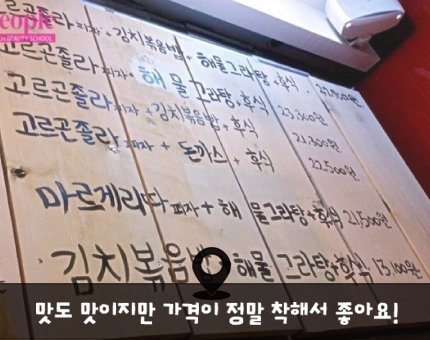 eople
BEAUTY SCHOOL
고르곤졸라피자+김치볶음밥+해물그라탕+후식
고르곤졸라피자+해물그라탕+후식 23,300원
고르곤졸라피자+김치볶음밥+후식 21,300원
고르곤졸라피자+돈까스+후식 22,500원
마르게리따피자+해물그라탕+후식 21,500원
김치볶음밥 해물그라탕+후식 13,100원
맛도 맛이지만 가격이 정말 착해서 좋아요!